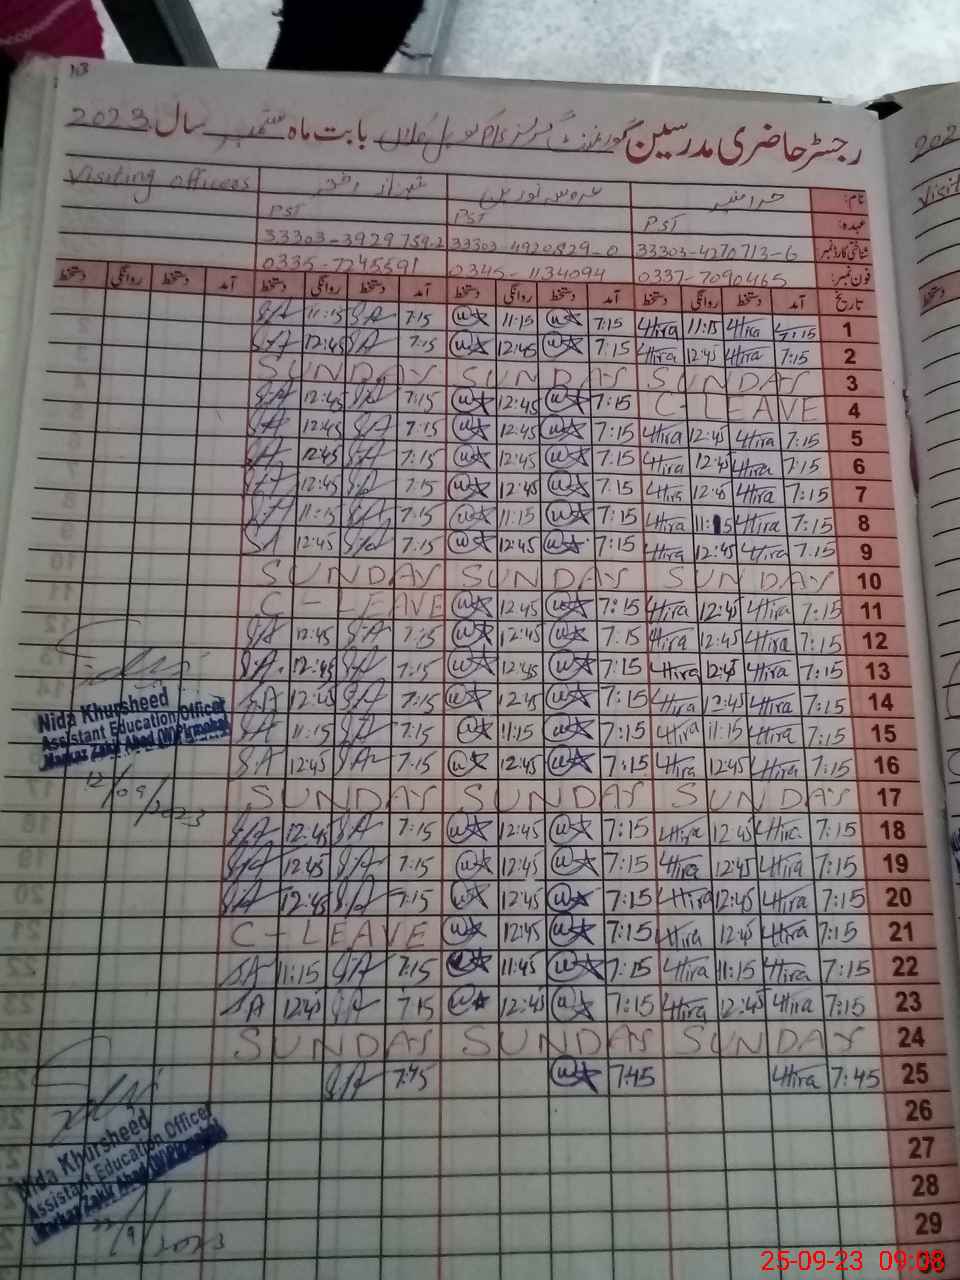 رجسٹر حاضری مدرسین گورنمنٹ گرلز بابت ماہ ستمبر سال 2023
نام: حرا منیر Visiting officers
عہدہ: PST PST PST
شناختی کارڈ نمبر 33303-4270713-6 33303-4920829-0 33303-3929759-2
فون نمبر: 0337-7090465 0345-1134094 0335-7245591
تاریخ آمد دستخط روانگی دستخط آمد دستخط روانگی دستخط آمد دستخط روانگی دستخط آمد دستخط روانگی دستخط
SA 11:15 SA 7:15 11:15 7:15 Hira 11:15 Hira 7:15 1
SA 12:45 SA 7:15 12:45 7:15 Hira 12:45 Hira 7:15 2
SUNDAY SUNDAY SUNDAY 3
SA 12:45 SA 7:15 12:45 7:15 C-LEAVE 4
SA 12:45 SA 7:15 12:45 7:15 Hira 12:45 Hira 7:15 5
SA 12:45 SA 7:15 12:45 7:15 Hira 12:45 Hira 7:15 6
SA 12:45 SA 7:15 12:45 7:15 Hira 12:45 Hira 7:15 7
SA 11:15 SA 7:15 11:15 7:15 Hira 11:15 Hira 7:15 8
SA 12:45 SA 7:15 12:45 7:15 Hira 12:45 Hira 7:15 9
SUNDAY SUNDAY SUNDAY 10
C-LEAVE 12:45 7:15 Hira 12:45 Hira 7:15 11
SA 12:45 SA 7:15 12:45 7:15 Hira 12:45 Hira 7:15 12
SA 12:45 SA 7:15 12:45 7:15 Hira 12:45 Hira 7:15 13
SA 12:45 SA 7:15 12:45 7:15 Hira 12:45 Hira 7:15 14
SA 11:15 SA 7:15 11:15 7:15 Hira 11:15 Hira 7:15 15
SA 12:45 SA 7:15 12:45 7:15 Hira 12:45 Hira 7:15 16
SUNDAY SUNDAY SUNDAY 17
SA 12:45 SA 7:15 12:45 7:15 Hira 12:45 Hira 7:15 18
SA 12:45 SA 7:15 12:45 7:15 Hira 12:45 Hira 7:15 19
SA 12:45 SA 7:15 12:45 7:15 Hira 12:45 Hira 7:15 20
C-LEAVE 12:45 7:15 Hira 12:45 Hira 7:15 21
SA 11:15 SA 7:15 11:45 7:15 Hira 11:15 Hira 7:15 22
SA 12:45 SA 7:15 12:45 7:15 Hira 12:45 Hira 7:15 23
SUNDAY SUNDAY SUNDAY 24
SA 7:45 7:45 Hira 7:45 25
26
27
28
29
Nida Khursheed
Assistant Education Officer
Markaz Zakir Abad (W) Pirmahal
12/09/2023
Nida Khursheed
Assistant Education Officer
Markaz Zakir Abad (W) Pirmahal
/9/2023
25-09-23 09:08